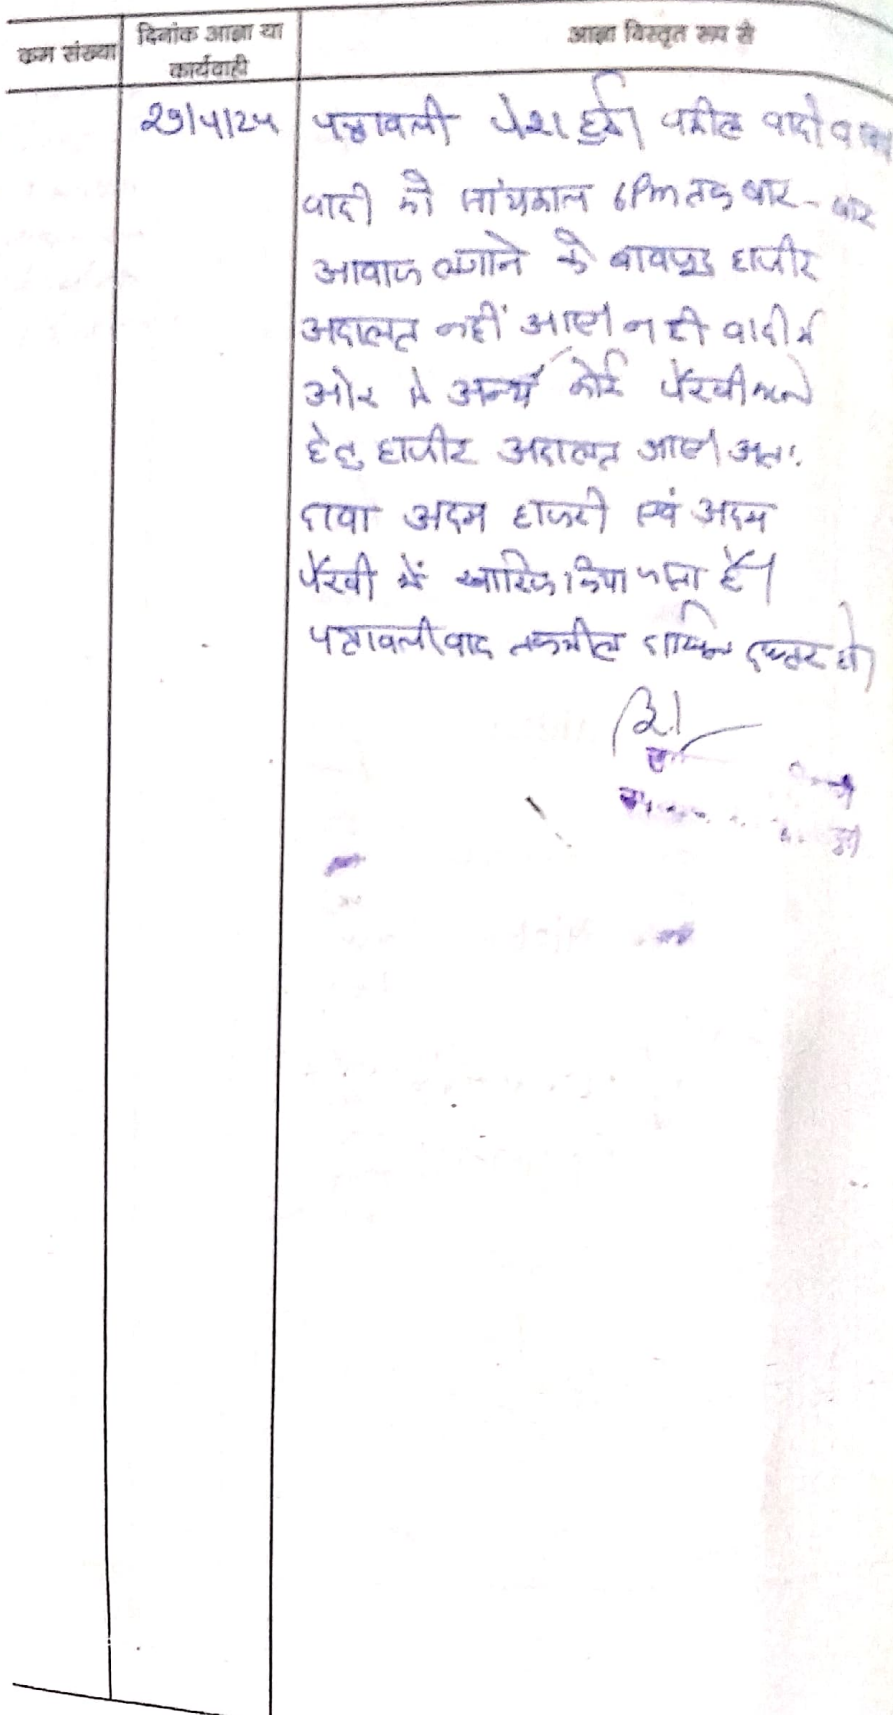 क्रम संख्या
दिनांक आज्ञा या
कार्यवाही
आज्ञा विस्तृत रूप से
पत्रावली पेश हुई। वकील वादी व
वादी को सांयकाल 6Pm तक बार - बार
आवाज लगाने के बावजूद हाजीर
अदालत नहीं आए। न ही वादी की
ओर से अन्य कोई पैरवी करने
हेतु हाजीर अदालत आए। अतः
दावा अदम हाजरी एवं अदम
पैरवी में खारिज किया जाता है।
पत्रावली वाद तकमील दाखिल दफ्तर हो।